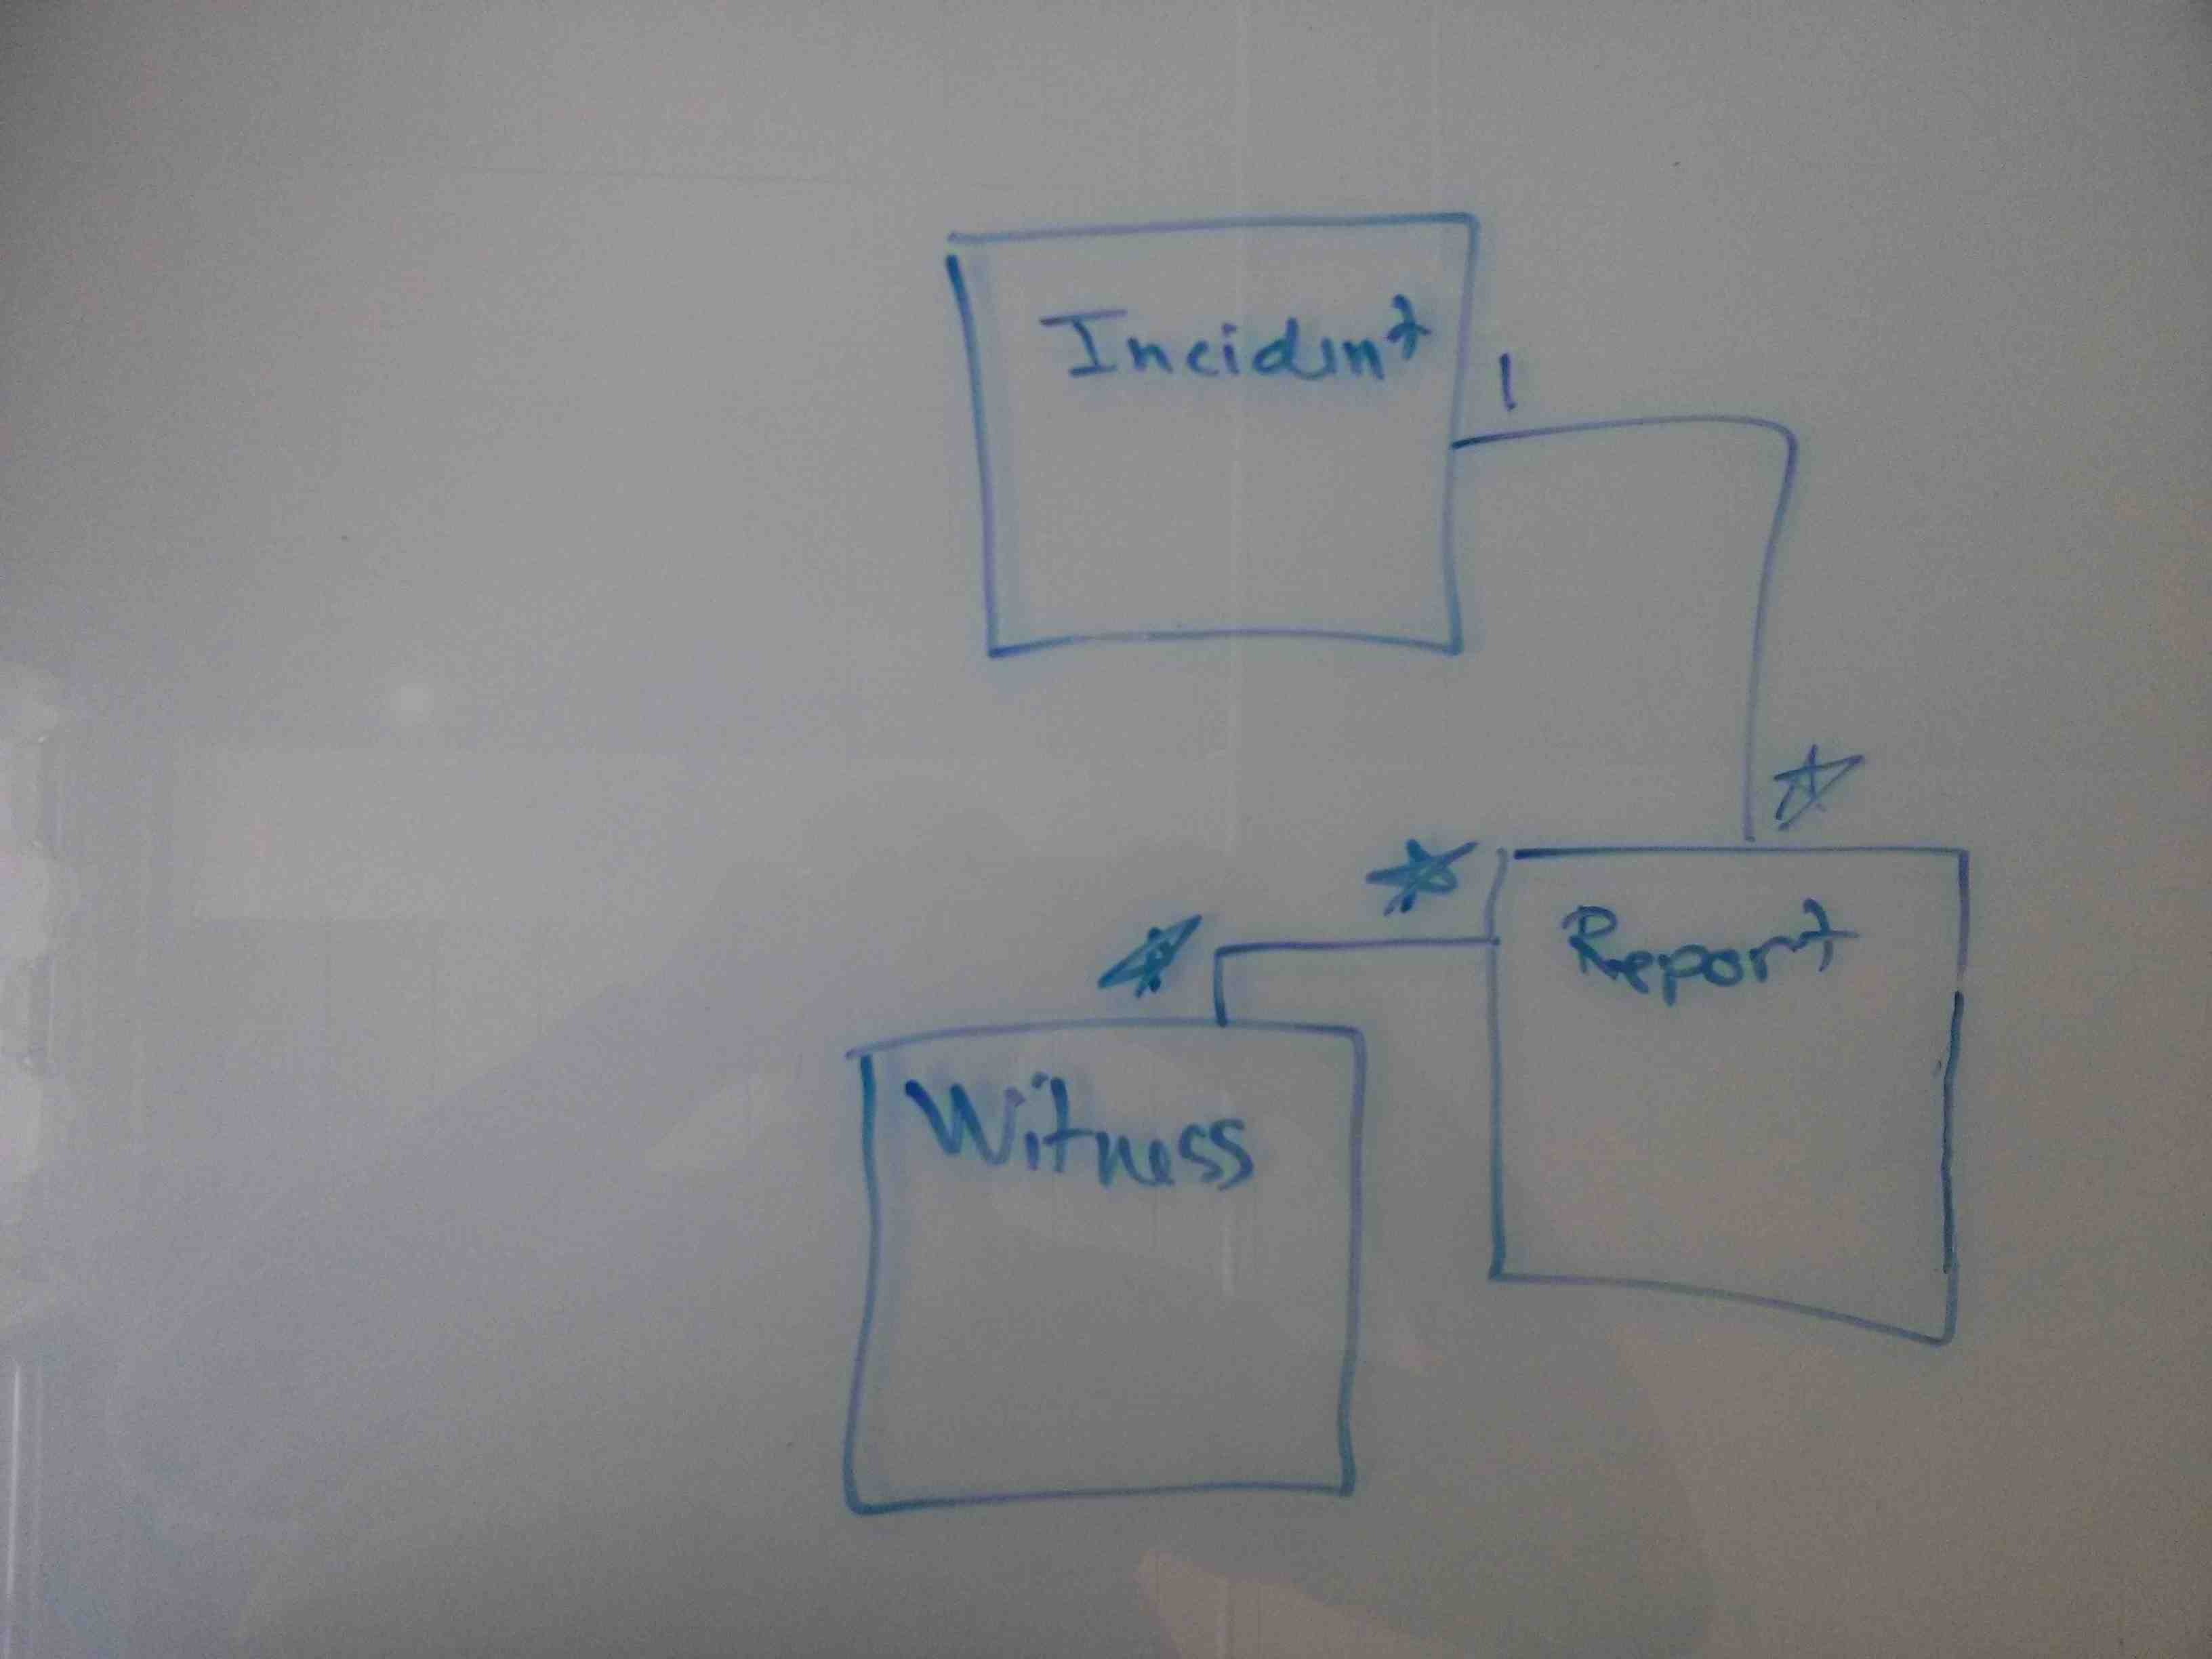 Incident
1
*
*
Report
*
Witness